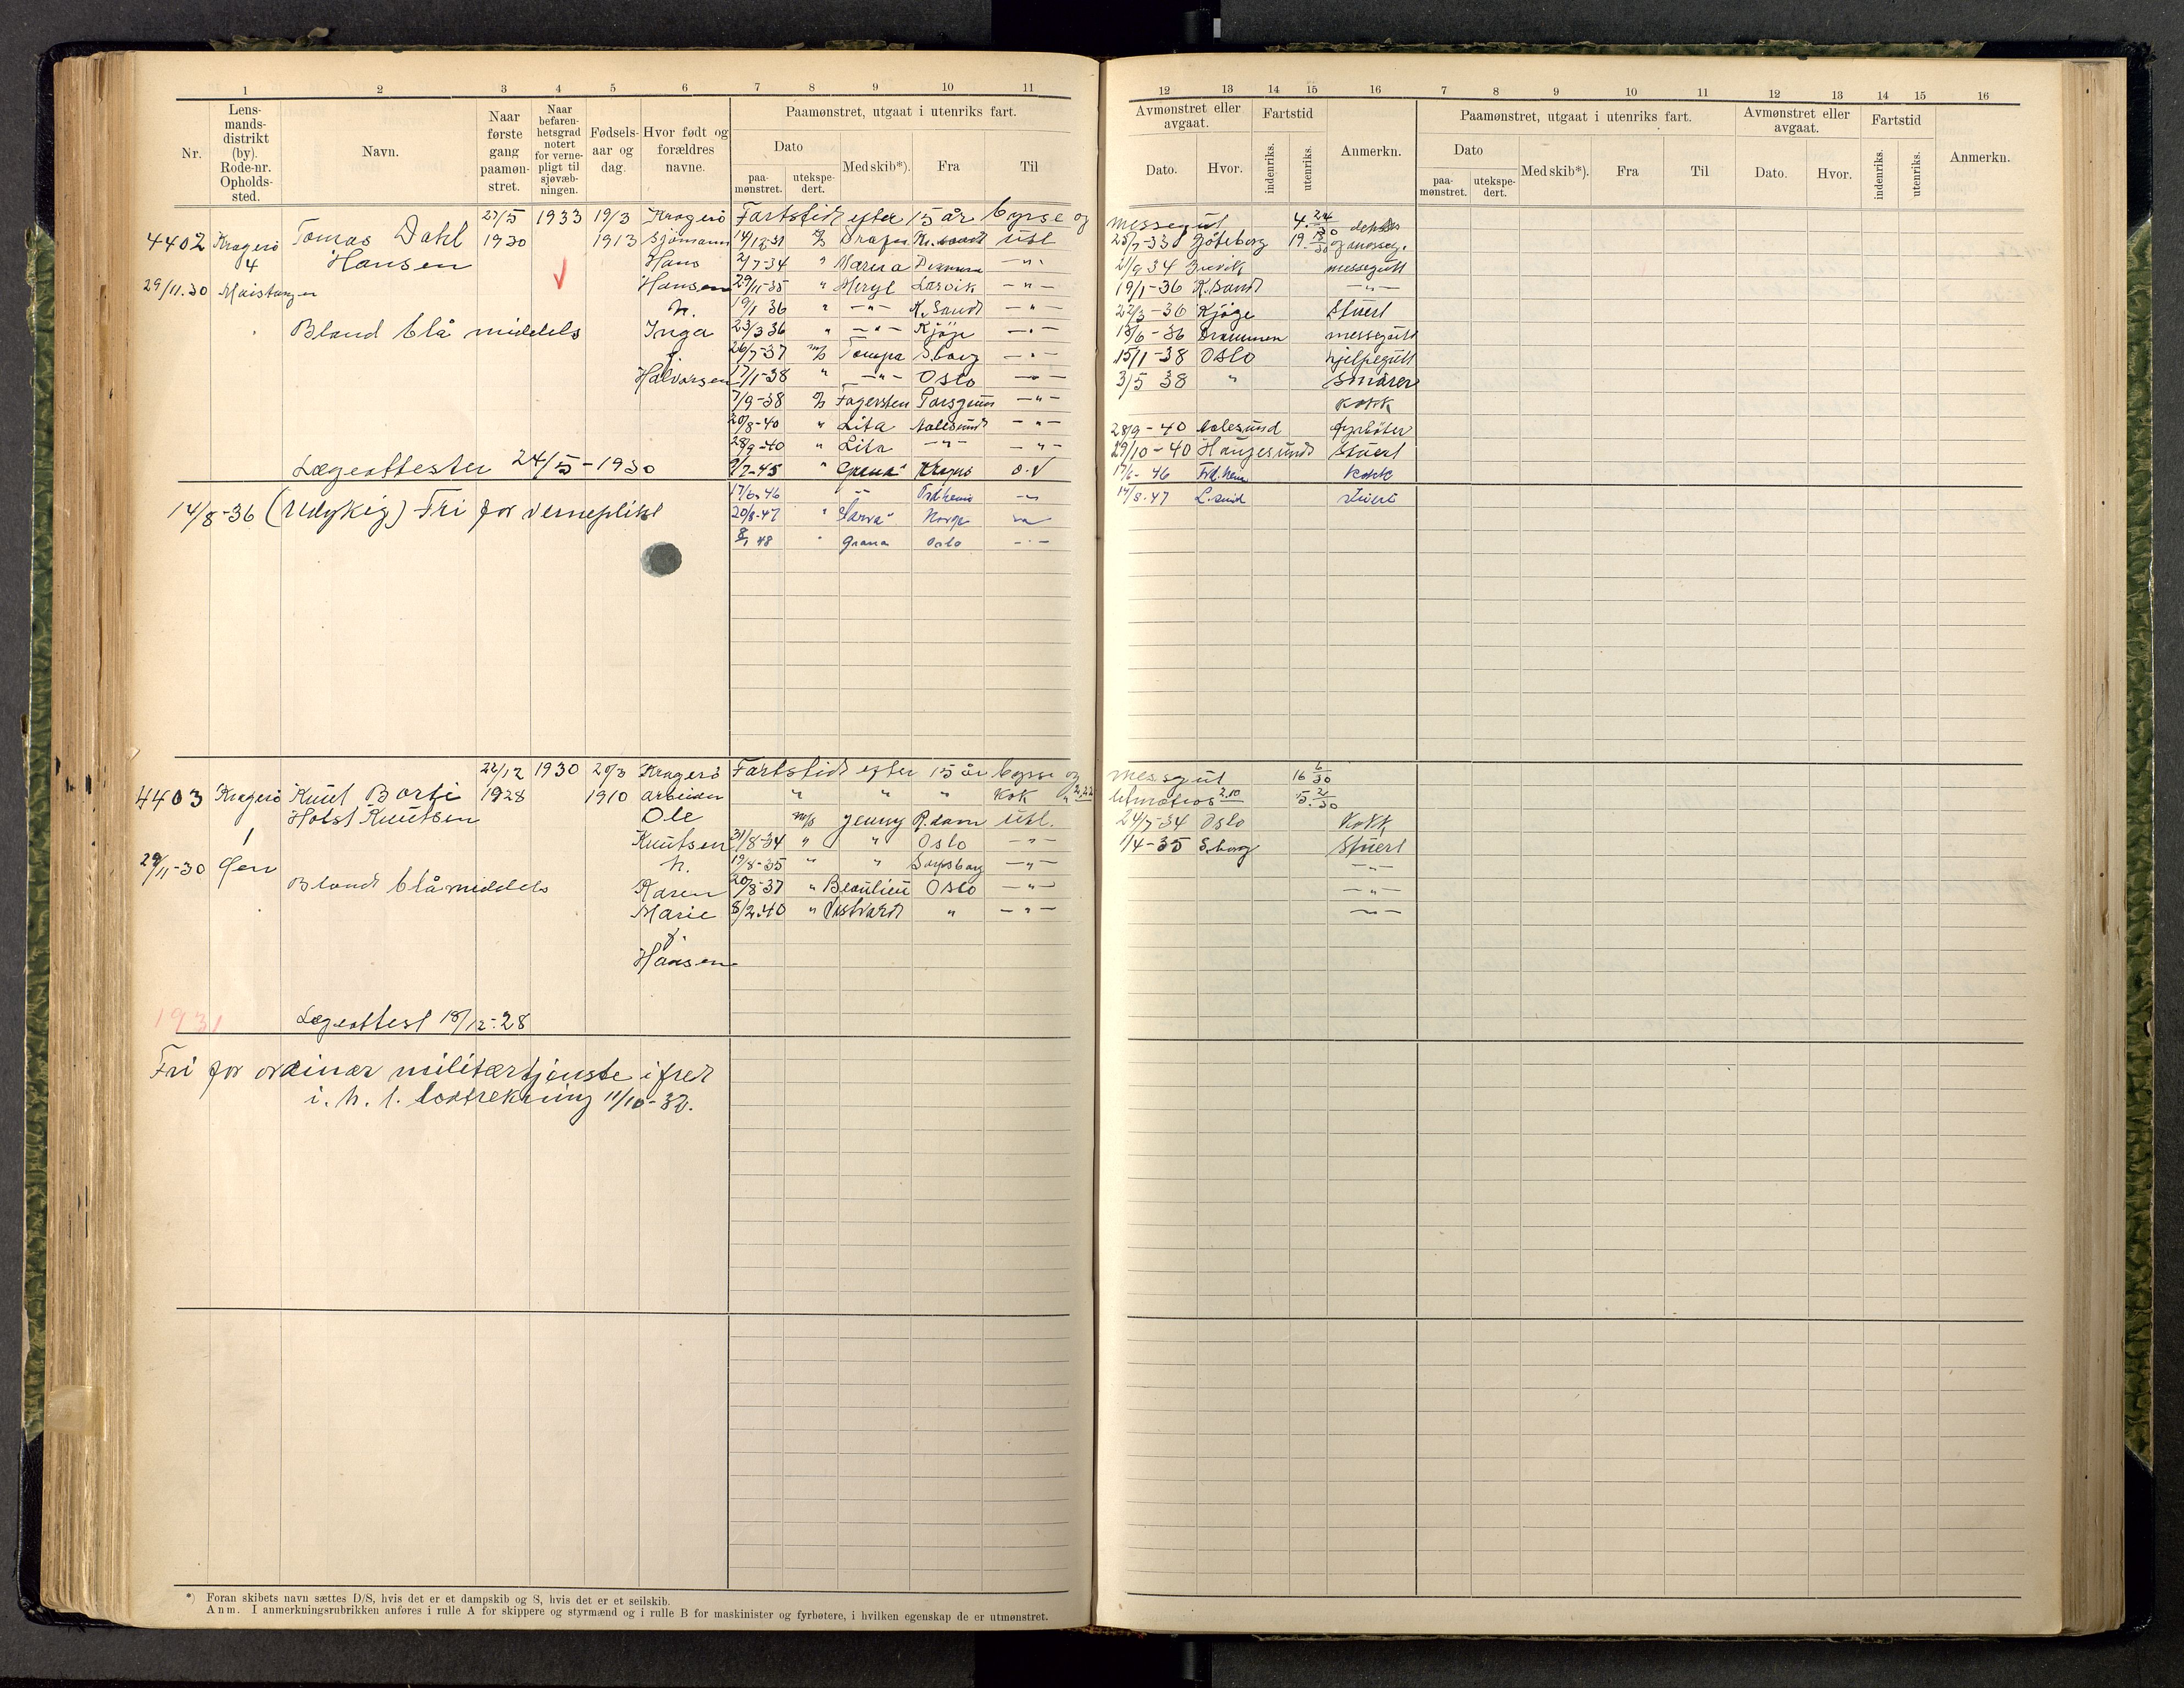 1 2 3 4 5 6 7 8 9 10 11
Nr.
Lens-
mands-
distrikt
(by).
Rode-nr.
Opholds-
sted.
Navn.
Naar
første
gang
paamøn-
stret.
Naar
befaren-
hetsgrad
notert
for verne-
pligt til
sjøvæb-
ningen.
Fødsels-
aar og
dag.
Hvor født og
forældres
navne.
Paamønstret, utgaat i utenriks fart.
Dato
paa-
mønstret.
utekspe-
dert.
Med skib*).
Fra
Til
27/5 1933 19/3 Kragerö Fartstid efter 15 år byrse og
4402 Kragerö Tomas Dahl 1930 1913 Sjömann 14/12-31 utl
4 Hansen Hans 2/7-34 " — " —
29/11.30 Hansen 29/11-35 " Meryl Larvik — " —
h. 19/1 36 " — " — K. Sand — " —
Bland blå middels Inga 23/3 36 " — " — Kjöge — " —
f. 26/7-37 m/s Tompa S.borg — " —
Halvorsen 17/1-38 " — " — Oslo — " —
7/9-38 Fagersten Porsgrunn — " —
20/8-40 " Lita Aalesund — " —
28/9-40 " Lita — " — — " —
Lægeattester 24/5-1930 9/7-45 " Grana Kragerö
17/6-46 — " —
14/8-36 (Udykig) Fri for verneplikt 20/8-47 " Norge
48 " Grana Oslo — " —
22/12 1930 20/3 Kragerö Fartstid efter 15 år byrse og
4403 Kragerö Knut Borti 1928 1910 arbeider " " " Kok
Holst Knutsen Ole m/s Jenny R.dam utl.
1 Knutsen 31/8-34 " " Oslo — " —
29/11-30 h. 19/8-35 " " Sarpsborg — " —
Blond blå middels Karen 20/8-37 " Beaulieu Oslo — " —
Marie 8/2-40 " Vestvard " — " —
f.
Hansen
1931 Lægeattest 18/12-28
Fri for ordinær militærtjenste i fred
i. h. t. lodtrekning 11/10-32.
*) Foran skibets navn sættes D/S, hvis det er et dampskib og S, hvis det er et seilskib.
Anm. I anmerkningsrubrikken anføres i rulle A for skippere og styrmænd og i rulle B for maskinister og fyrbøtere, i hvilken egenskap de er utmønstret.
12 13 14 15 16 7 8 9 10 11 12 13 14 15 16
Avmønstret eller
avgaat.
Fartstid
Dato.
Hvor.
indenriks.
utenriks.
Anmerkn.
Paamønstret, utgaat i utenriks fart.
Dato
paa-
mønstret.
utekspe-
dert.
Med skib*).
Fra
Til
Avmønstret eller
avgaat.
Dato.
Hvor.
Fartstid
indenriks.
utenriks.
Anmerkn.
messegut 4. 24/30
25/7-33 Göteborg 19.
2/9 34 Brevik messegutt
19/1-36 K.Sand — " —
22/3-36 Kjöge Stuert
18/6-36 Drammen messegutt
15/1-38 Oslo hjelpegutt
3/5 38 " Smörer
Kokk
28/9-40 Aalesund fyrböter
29/10-40 Haugesund Stuert
17/6-46 Kokk
14/8-47 L.sund stuert
messegut 16 6/30
letmatros 2.10 5. 2/30
24/7-34 Oslo Kokk
1/4-35 S.borg Stuert
— " —
— " —
— " —